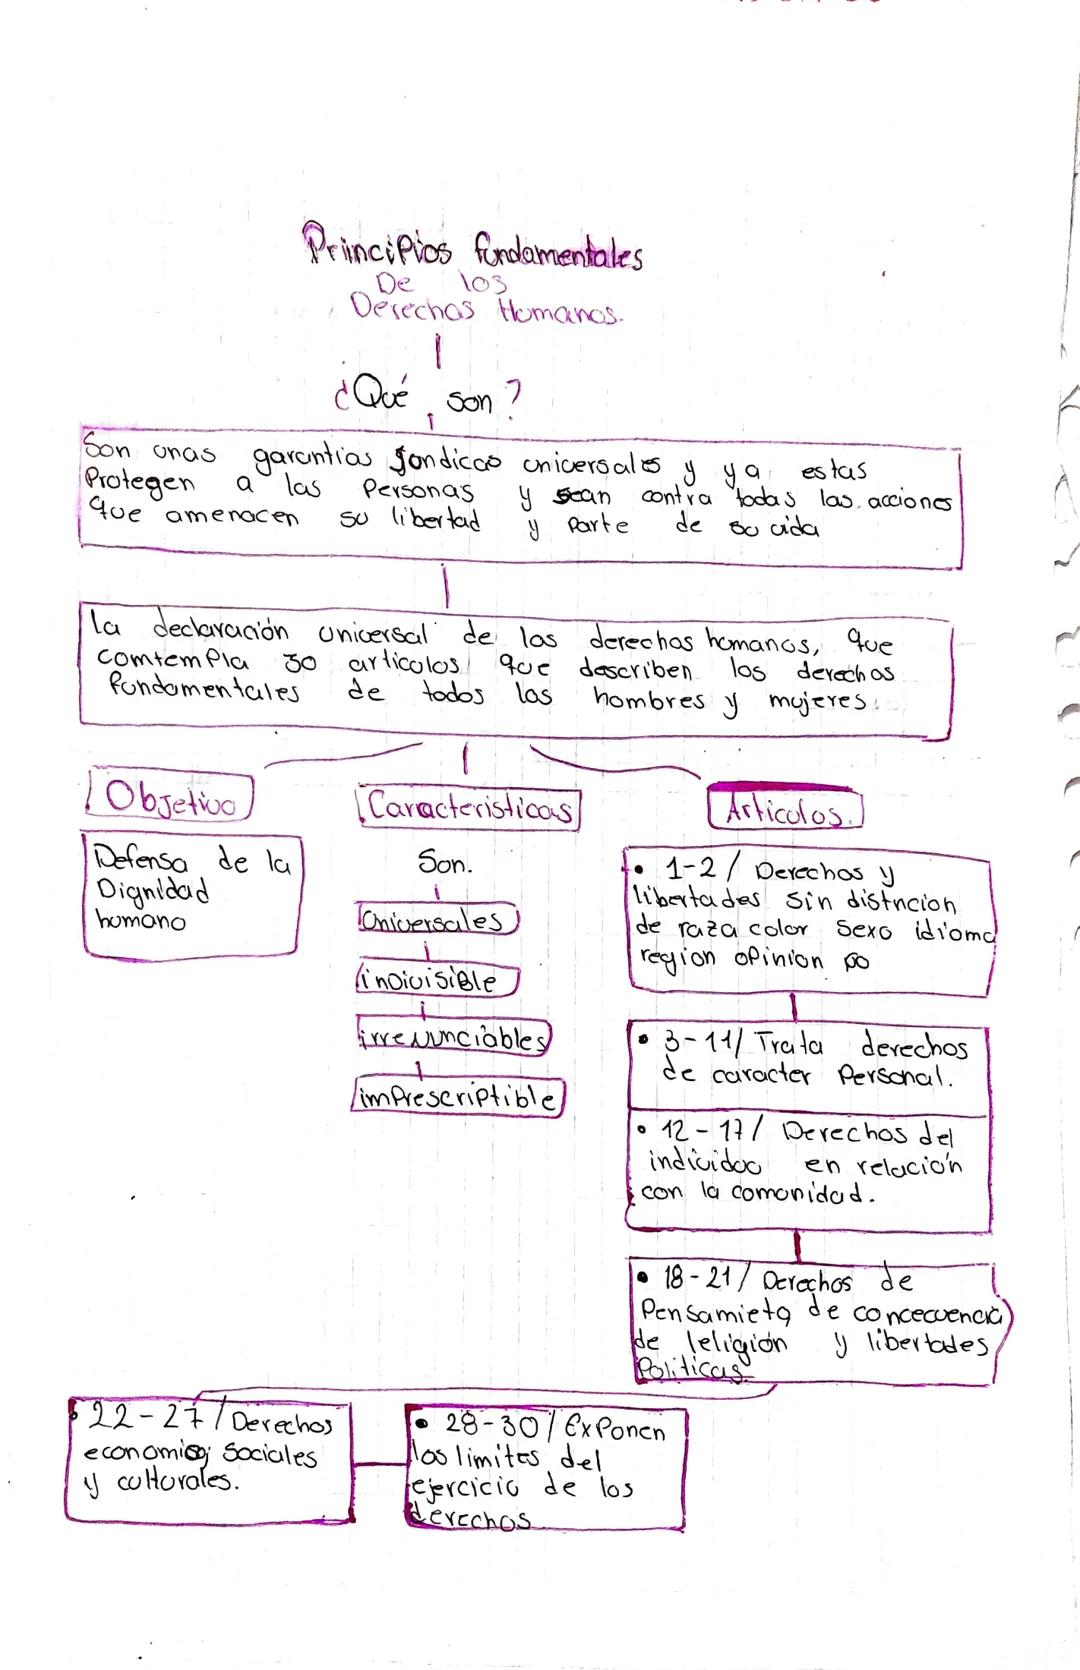 Principios fundamentales
De los
Derechos Humanos.
¿Qué son?
Son unas garantias Jondicas universales y ya estas
Protegen a las Personas y sean contra todas las acciones
que amenacen su libertad y Parte de su vida
la declaración universal de los derechos homanos, que
comtempla 30 articulos que describen los derechos
fundamentales de todos los hombres y mujeres.
Objetivo
Caracteristicas
Articulos.
Defensa de la
Dignidad
homano
Son.
Universales
indivisible
irrenunciables
imprescriptible
• 1-2 / Derechos y
libertades sin distncion
de raza color sexo idioma
region opinion
• 3-11/ Trata derechos
de caracter Personal.
• 12-17/ Derechos del
individuo en relación
con la comonidad.
• 18-21/ Derechos de
Pensamieto de concecuencia
de leligión y libertades
Politicas
• 22-27/ Derechos
economico; Sociales
y colturales.
• 28-30/ Exponen
los limites del
ejercicio de los
derechos